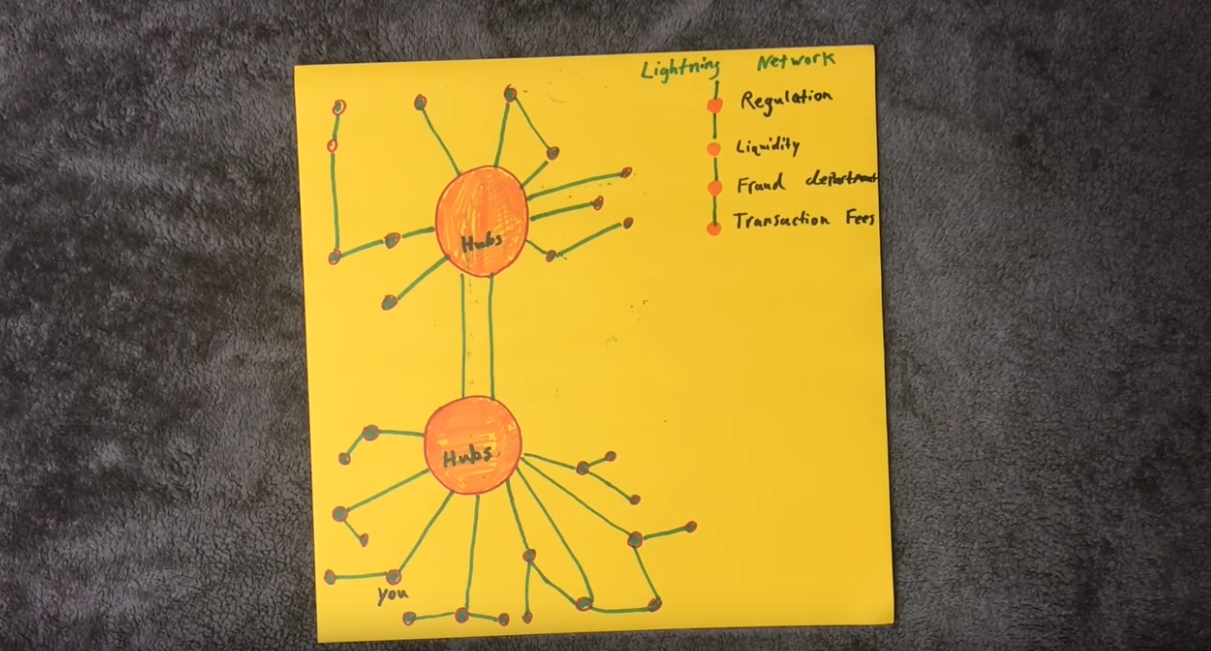 Lightning Network
Regulation
Liquidity
Fraud department
Transaction Fees
Hubs
Hubs
you